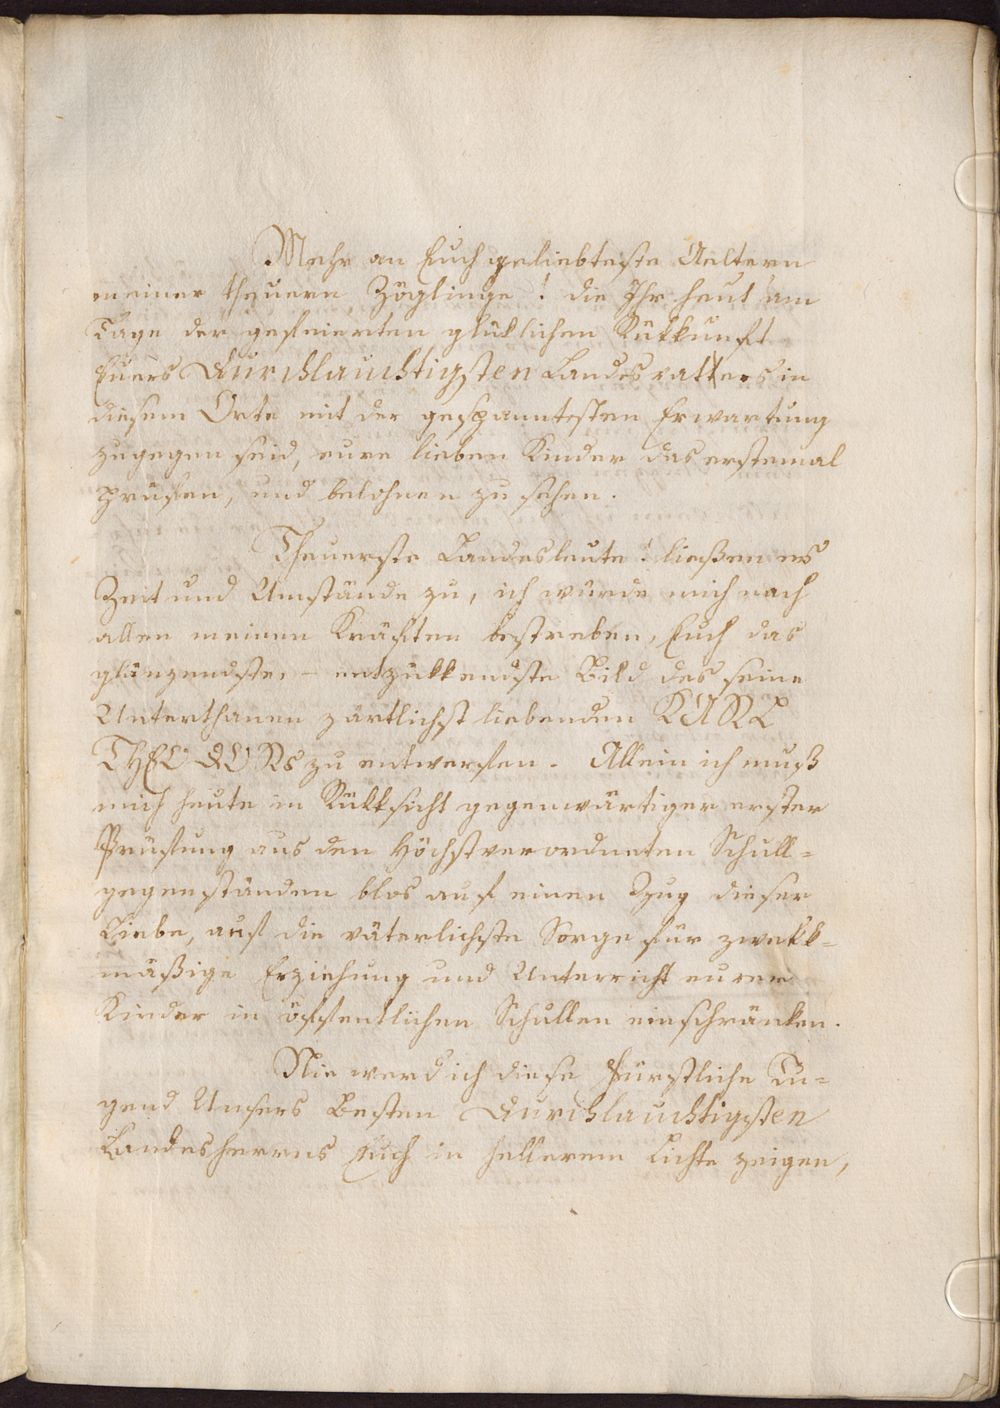 Mehr an Euch geliebteste Aeltern
meiner theuern Zöglinge! die Ihr heut am
Tage der gefeierten glüklichen Rükkunft
Euers Durchlauchtigsten Landesvatters in
diesem Orte mit der gespanntesten Erwartung
zugegen seid, eure lieben Kinder das erstemal
prüfen, und belohnen zu sehen.
Theuerste Landesleute! ließen es
Zeit und Umstände zu, ich würde mich nach
allen meinen Kräften bestreben, Euch das
glänzendste, – entzükkendste Bild des seine
Unterthanen zärtlichst liebenden KARL
THEODORs zu entwerfen. Allein ich muß
mich heute in Rükksicht gegenwärtiger erster
Prüfung aus den Höchstverordneten Schull-
gegenständen blos auf einen Zug dieser
Liebe, auf die väterlichste Sorge für zwekk-
mäßige Erziehung und Unterricht eurer
Kinder in öffentlichen Schullen einschränken.
Nie werd ich diese Fürstliche Tu-
gend Unsers Besten Durchlauchtigsten
Landesherrns Euch in hellerem Lichte zeigen,